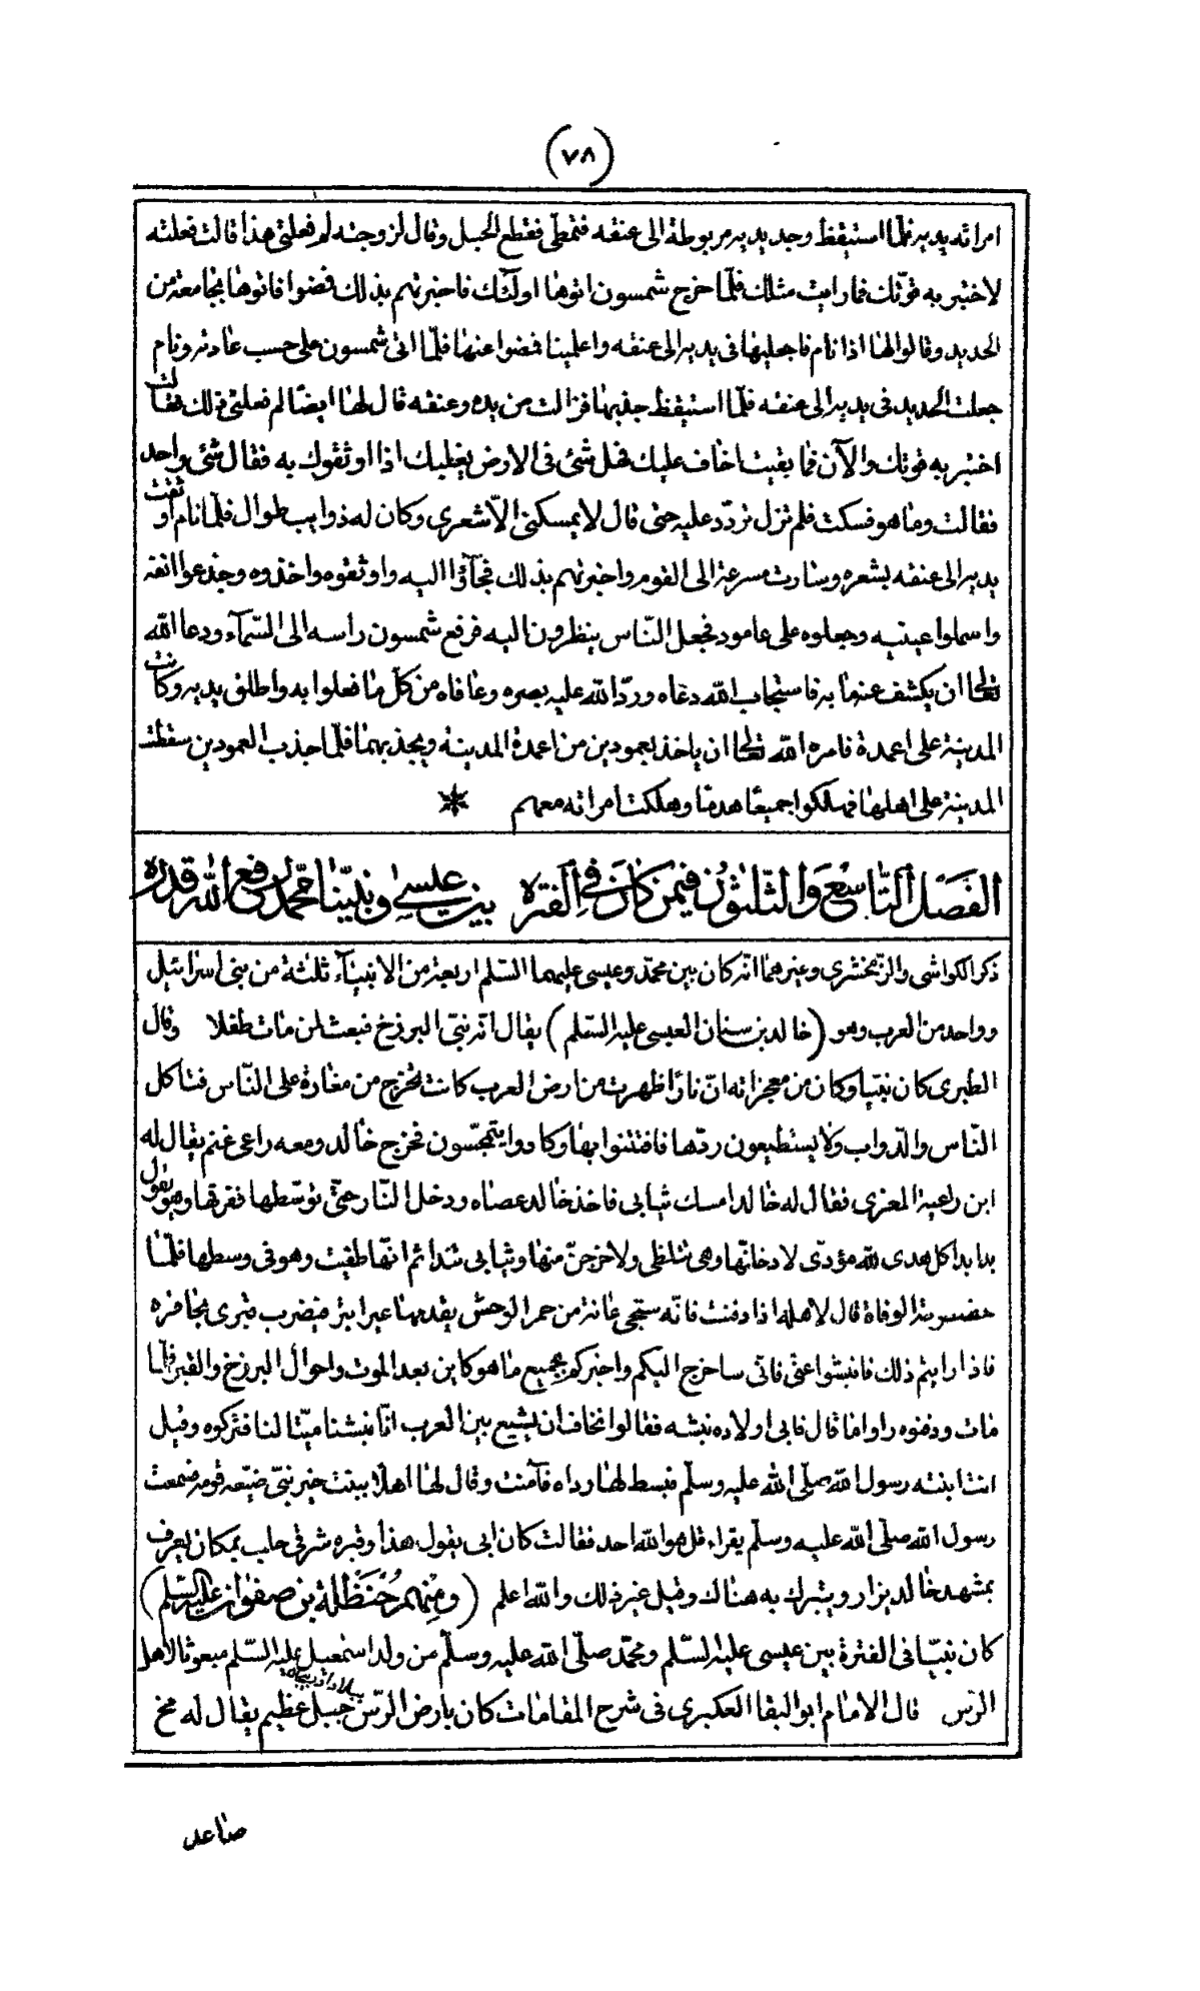 (٧٨)
امراته يديه فلمّا استيقظ وجد يديه مربوطة الى عنقه فتمطّى فقطع الحبل وقال لزوجته لم فعلتى هذا قالت فعلته
لاختبر به قوّتك فما رايت مثلك فلمّا خرج شمسون اتوها اولٓئك فاخبرتهم بذلك فمضوا فاتوها بجامعة من
الحديد وقالوا لها اذا نام فاجعليها فى يديه الى عنقه واعلمينا فمضوا عنها فلمّا اتى شمسون على حسب عادته ونام
جعلت الحديد فى يديه الى عنقه فلمّا استيقظ جذبها فزالت من يده وعنقه قال لها ايضًا لم فعلتى ذلك فقالت
اختبر به قوتك والآن فما بقيت اخاف عليك فهل شئ فى الارض يغلبك اذا اوثقوك به فقال شئ واحد
فقالت وما هو فسكت فلم تزل تردّد عليه حتى قال لا يمسكنى الّا شعرى وكان له ذوايب طوال فلمّا نام اوثقت
يديه الى عنقه بشعره وسارت مسرعة الى القوم واخبرتهم بذلك فجآؤا اليه واوثقوه واخذوه وجذعوا انفه
واسملوا عينيه وجعلوه على عامود فجعل النّاس ينظرون اليه فرفع شمسون راسه الى السّمآء ودعا الله
تعالى ان يكشف عنه ما به فاستجاب الله دعاه وردّ الله عليه بصره وعافاه من كلّ ما فعلوا به واطلق يديه وكانت
المدينة على اعمدة فامره الله تعالى ان ياخذ بعمودين من اعمدة المدينة ويجذبهما فلمّا جذب العمودين سقطت
المدينة على اهلها فهلكوا جميعًا هدمًا وهلكت امراته معهم *
الفَصْل التّاسِع وَالثّلثُون فيمن كَانَ فى الفترة بين عيسى ونبيّنا محمّد رفع الله قدره
ذكر الكواشى والزمخشرى وغيرهما انّه كان بين محمّد وعيسى عليهما السّلم اربعة من الانبيآء ثلثة من بنى اسرائيل
وواحد من العرب وهو (خالد بن سنان العبسى عليه السّلم) يقال انّه نبىّ البرزخ فبعث لمن مات طفلا وقال
الطبرى كان نبيّا وكان من معجزاته انّ نارًا ظهرت من ارض العرب كانت تخرج من مغارة على النّاس فتاكل
النّاس والدّواب ولا يستطيعون ردّها فافتتنوا بها وكادوا يتمجّسون فخرج خالد ومعه راعى غنم يقال له
ابن راعية المعزى فقال له خالد امسك ثيابى فاخذ خالد عصاه ودخل النّار حتّى توسّطها ففرقها وهو يقول
بدا بدا كل هدى لله مؤدّى لا دخلنّها وهى تتلظى ولاخرجنّ منها وثيابى تندا ثم انّها طفيت وهو فى وسطها فلمّا
حضرته الوفاة قال لاهله اذا دفنت فانّه ستجى عانة من حمر الوحش يقدمها عير ابتر فيضرب قبرى بحافره
فاذا رايتم ذلك فانبشوا عنّى فانّى ساخرج اليكم واخبركم بجميع ما هو كاين بعد الموت واحوال البرزخ والقبر فلمّا
مات ودفنوه راوا ما قال فابى اولاده نبشه فقالوا نخاف ان يشيع بين العرب انّا نبشنا ميّتا لنا فتركوه وقيل
اتت ابنته رسول الله صلّى الله عليه وسلّم فبسط لها رداه فآمنت وقال لها اهلًا ببنت خير نبىّ ضيّعه قومه فسمعت
رسول الله صلّى الله عليه وسلّم يقراء قل هو الله احد فقالت كان ابى يقول هذا وقبره شرقى حلب بمكان يعرف
بمشهد خالد يزار ويتبرك به هناك وقيل غير ذلك والله اعلم (ومِنهم حُنَظَلة بن صفوان عليه السّلم)
كان نبيّا فى الفترة بين عيسى عليه السّلم ومحمّد صلّى الله عليه وسلّم من ولد اسمعيل عليه السّلم مبعوثا لاهل
الرّس قال الامام ابو البقا العكبرى فى شرح المقامات كان بارض الرّس جبل عظيم يقال له مخ
صاعد